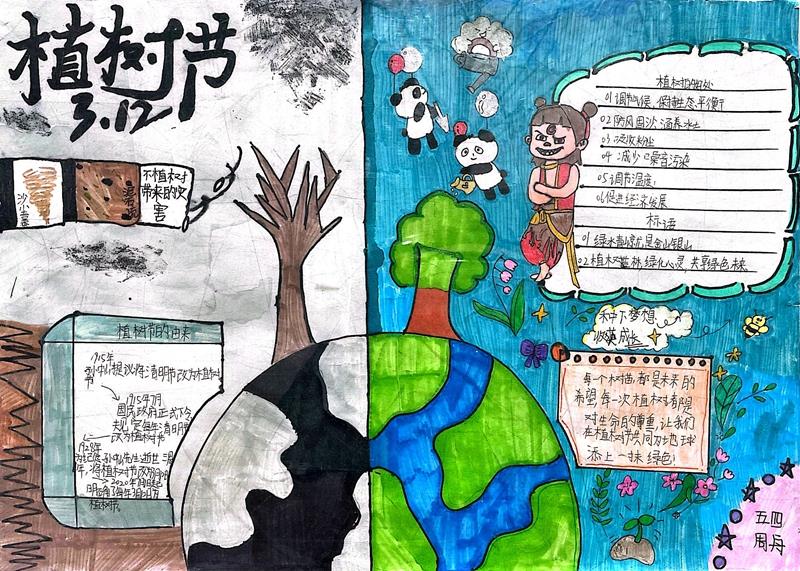 植树节
3.12
沙尘暴
泥石流
不植树
带来的灾
害
植树节的由来
1915年
孙中山提议将清明节改为植树
节
1915年7月
国民政府正式下令
规定每年清明节
改为植树节
1928年
为纪念孙中山先生逝世
年，将植树节改为
2020年7月
明确了每年3月12日为
植树节。
植树的好处
01调节气候、保持生态平衡
02防风固沙、涵养水土
03吸收粉尘
04减少噪音污染
05调节温度
06促进经济发展
标语
01绿水青山就是金山银山
02植树造林，绿化心灵，共享绿色未来。
种下梦想
收获成长
每一个树苗都是未来的
希望，每一次植树都是
对生命的尊重，让我们
在植树节共同为地球
添上一抹绿色！
五四
周舟